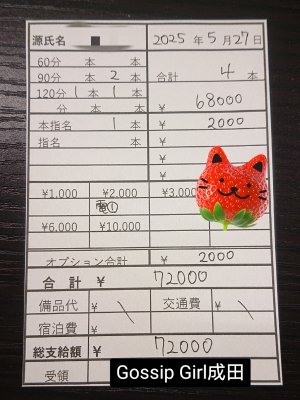 源氏名 2025年5月27日
60分 本 本
90分 本 2本 合計 4本
120分 1本 1本 ¥ 68000
分 本 本 ¥ 2000
本指名 1本 ¥
指名 本 ¥
¥
¥1.000 ¥2.000 ¥3.000
電①
¥6.000 ¥10.000
オプション合計 ¥ 2000
合計 ¥ 72000
備品代 ¥ \ 交通費 ¥ \
宿泊費 ¥
総支給額 ¥ 72000
受領
Gossip Girl成田